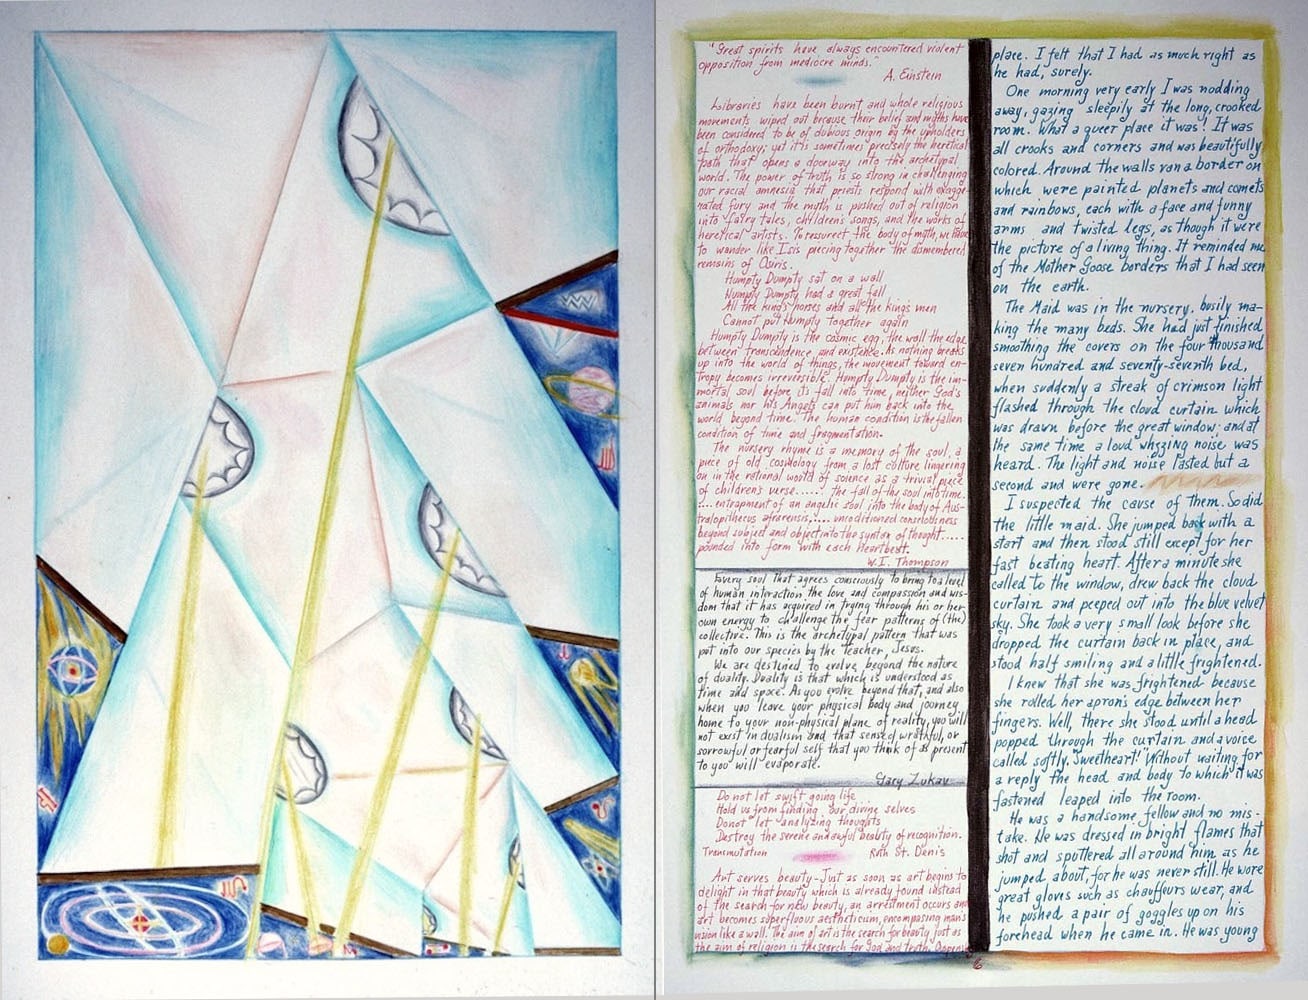 "Great spirits have always encountered violent
opposition from mediocre minds."
A. Einstein
Libraries have been burnt and whole religious
movements wiped out because their belief and myths have
been considered to be of dubious origin by the upholders
of orthodoxy; yet it is sometimes precisely the heretical
path that opens a doorway into the archetypal
world. The power of truth is so strong in challenging
our racial amnesia that priests respond with exagge-
rated fury and the myth is pushed out of religion
into fairy tales, children's songs, and the works of
heretical artists. To resurrect the body of myth, we have
to wander like Isis piecing together the dismembered
remains of Osiris.
Humpty Dumpty sat on a wall
Humpty Dumpty had a great fall
All the king's horses and all the kings men
Cannot put Humpty together again
Humpty Dumpty is the cosmic egg, the wall the edge
between transcendence and existence. As nothing breaks
up into the world of things, the movement toward en-
tropy becomes irreversible. Humpty Dumpty is the im-
mortal soul before its fall into time, neither God's
animals nor his Angels can put him back into the
world beyond time. The human condition is the fallen
condition of time and fragmentation.
The nursery rhyme is a memory of the soul, a
piece of old cosmology from a lost culture lingering
on in the rational world of science as a trivial piece
of children's verse..... the fall of the soul into time..
... entrapment of an angelic soul into the body of Aus-
tralopithecus afarensis,.... unconditioned consciousness
beyond subject and object into the syntax of thought.....
pounded into form with each Heartbeat.
W.I. Thompson
Every soul that agrees consciously to bring to a level
of human interaction the love and compassion and wis-
dom that it has acquired in trying through his or her
own energy to challenge the fear patterns of (the)
collective. This is the archetypal pattern that was
put into our species by the teacher, Jesus.
We are destined to evolve beyond the nature
of duality. Duality is that which is understood as
time and space. As you evolve beyond that, and also
when you leave your physical body and journey
home to your non-physical plane of reality, you will
not exist in dualism and that sense of wrathful, or
sorrowful or fearful self that you think of as present
to you will evaporate.
Gary Zukav
Do not let swift going life
Hold us from finding our divine selves
Do not let analyzing thoughts
Destroy the serene and awful beauty of recognition.
Transmutation Ruth St. Denis
Art serves beauty - Just as soon as art begins to
delight in that beauty which is already found instead
of the search for new beauty, an arrestment occurs and
art becomes superfluous aestheticism, encompasing man's
vision like a wall. The aim of art is the search for beauty just as
the aim of religion is the search for God and truth.
place. I felt that I had as much right as
he had, surely.
One morning very early I was nodding
away, gazing sleepily at the long, crooked
room. What a queer place it was! It was
all crooks and corners and was beautifully
colored. Around the walls ran a border on
which were painted planets and comets
and rainbows, each with a face and funny
arms and twisted legs, as though it were
the picture of a living thing. It reminded me
of the Mother Goose borders that I had seen
on the earth.
The Maid was in the nursery, busily ma-
king the many beds. She had just finished
smoothing the covers on the four thousand
seven hundred and seventy-seventh bed,
when suddenly a streak of crimson light
flashed through the cloud curtain which
was drawn before the great window; and at
the same time a loud whzzing noise was
heard. The light and noise lasted but a
second and were gone.
I suspected the cause of them. So did
the little maid. She jumped back with a
start and then stood still except for her
fast beating heart. After a minute she
called to the window, drew back the cloud
curtain and peeped out into the blue velvet
sky. She took a very small look before she
dropped the curtain back in place, and
stood half smiling and a little frightened.
I knew that she was frightened because
she rolled her apron's edge between her
fingers. Well, there she stood until a head
popped through the curtain and a voice
called softly, "Sweetheart!" Without waiting for
a reply the head and body to which it was
fastened leaped into the room.
He was a handsome fellow and no mis-
take. He was dressed in bright flames that
shot and sputtered all around him as he
jumped about, for he was never still. He wore
great gloves such as chauffeurs wear, and
he pushed a pair of goggles up on his
forehead when he came in. He was young
6